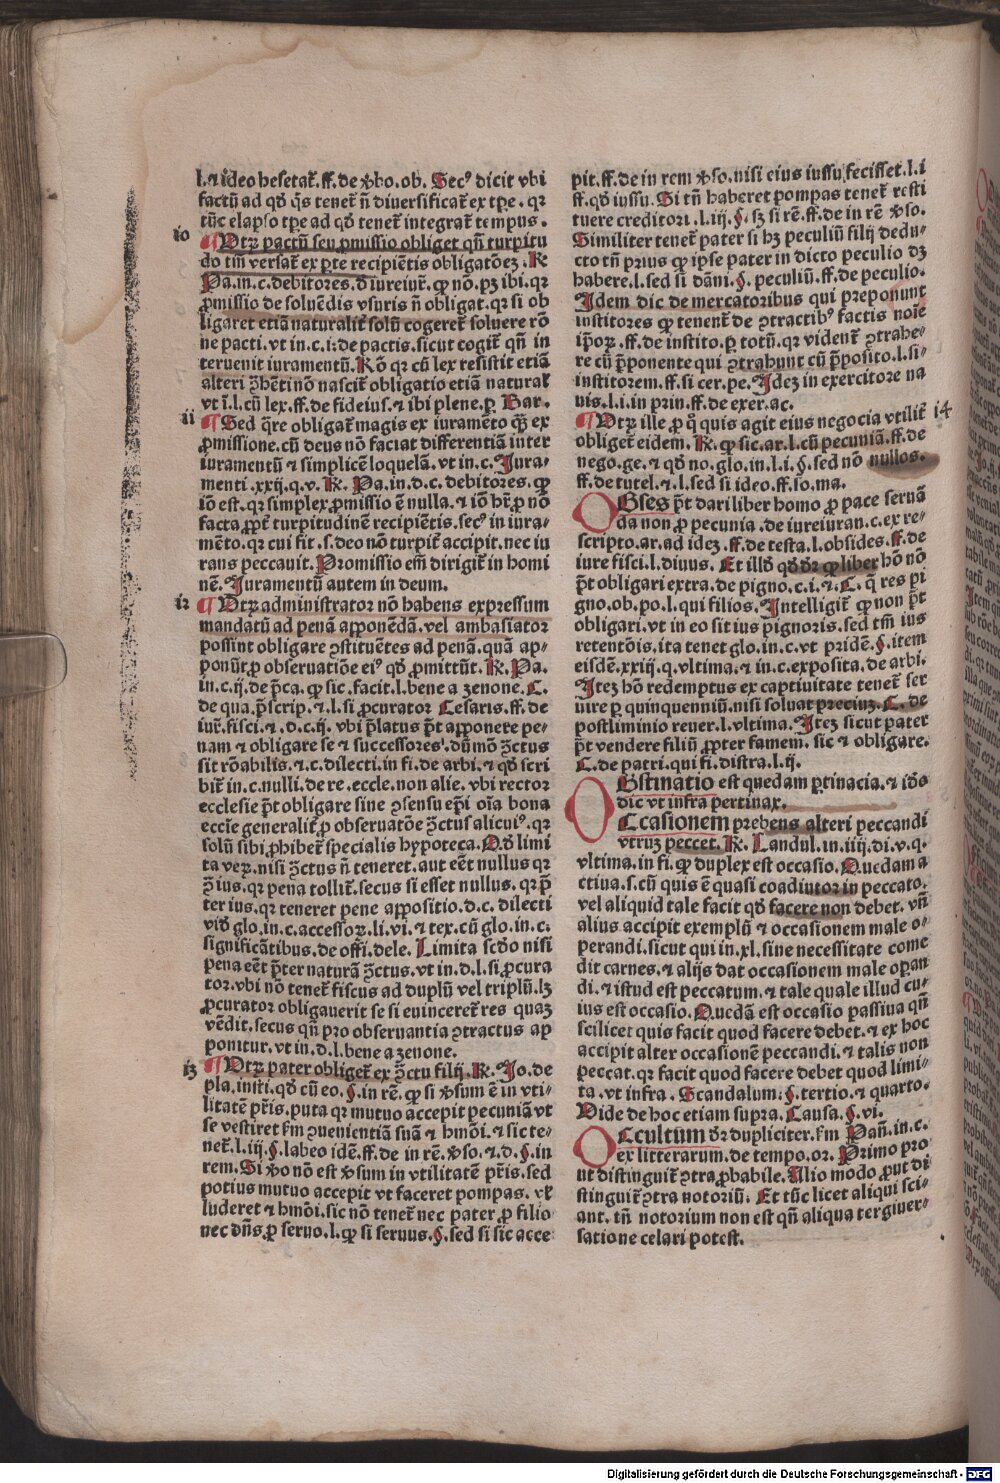 l. ⁊ ideo hesetat᷑. ff. de v̾bo. ob. Secꝰ dicit vbi
factū ad qḋ q̄s tenet᷑ n̄ diversificat᷑ ex tp̄e. qr
tūc elapso tp̄e ad qḋ tenet᷑ integrat᷑ tempus.
10
¶ Utꝝ pactū seu ꝓmissio obliget qn̄ turpitu
do tm̄ versat᷑ ex ꝑte recipiētis obligatōeꝫ. Rͥ.
Pa. in. c. debitores. ḋ iureiur. ꝙ nō. pꝫ ibi. qr
ꝓmissio de soluēdis vsuris n̄ obligat. qr si ob
ligaret etiā naturalit᷑ solū cogeret᷑ soluere rō
ne pacti. vt in. c. i. de pactis. sicut cogit᷑ qn̄ in
teruenit iuramentū. Rō qr cū lex resistit etiā
alteri ꝯ̄hēti nō nascit᷑ obligatio etiā natural᷑
vt ī. l. cū lex. ff. de fideius. ⁊ ibi plene. ꝑ Bar.
11
¶ Sed q̄re obligat᷑ magis ex iuramēto qꝫ ex
ꝓmissione. cū deus nō faciat differentiā inter
iuramentū ⁊ simplicē loquelā. vt in. c. Jura-
menti. xxij. q. v. Rͥ. Pa. in. d. c. debitores. ꝙ
iō est. qr simplex ꝓmissio ē nulla. ⁊ iō hr̄. ꝓ nō
facta ꝓpt᷑ turpitudinē recipiētis. secꝰ in iura-
mēto. qr cui fit. s. deo nō turpit᷑ accipit. nec iu
rans peccauit. Promissio em̄ dirigit᷑ in homi
nē. Juramentū autem in deum.
12
¶ Utꝝ administrator nō habens expressum
mandatū ad penā apponēdā. vel ambasiator
possint obligare ꝯstituētes ad penā. quā ap-
ponūt. ꝓ obseruatiōe eiꝰ qḋ ꝓmittūt. Rͥ. Pa.
in. c. ij. de p̄ca. ꝙ sic. facit. l. bene a zenone. C.
de qua. p̄scrip. ⁊. l. si ꝓcurator Cesaris. ff. de
iur̄. fisci. ⁊. d. c. ij. vbi p̄latus p̄t apponere pe-
nam ⁊ obligare se ⁊ successores. dūmō ꝯ̄ctus
sit rōabilis. ⁊. c. dilecti. in fi. de arbi. ⁊ qḋ scri
bit᷑ in. c. nulli. de re. eccle. non alie. vbi rector
ecclesie p̄t obligare sine ꝯsensu ep̄i oīa bona
eccl̄e generalit᷑ ꝓ obseruatōe ꝯ̄ctus alicuiꝰ. qr
solū sibi ꝓhibet᷑ specialis hypoteca. Qḋ limi
ta veꝝ. nisi ꝯ̄ctus n̄ teneret. aut eēt nullus qr
ꝯ̄ ius. qr pena tollit᷑. secus si esset nullus. qr p̄
ter ius. qr teneret pene appositio. d. c. dilecti
viḋ glo. in. c. accessoꝝ. li. vi. ⁊ tex. cū glo. in. c.
significātibus. de offi. dele. Limita scḋo nisi
pena eēt p̄ter naturā ꝯ̄ctus. vt in. d. l. si ꝓcura
tor. vbi nō tenet᷑ fiscus ad duplū vel triplū. lꝫ
ꝓcurator obligauerit se si euinceret᷑ res quaꝫ
vēdit. secus qn̄ pro obseruantia ꝯtractus ap
ponitur. vt in. d. l. bene a zenone.
13
¶ Utꝝ pater obliget᷑ ex ꝯ̄ctu filij. Rͥ. Jo. de
pla. insti. qḋ cū eo. §. in rē. ꝙ si v̾sum ē in vti-
litatē pr̄is. puta qr mutuo accepit pecuniā vt
se vestiret km̄ ꝯuenientiā suā ⁊ hmōi. ⁊ sic te-
net᷑. l. iij. §. labeo idē. ff. de in rē. v̾so. ⁊. d. §. in
rem. Si v̾o nō est v̾sum in vtilitatē pr̄is. sed
potius mutuo accepit vt faceret pompas. vl̓
luderet ⁊ hmōi. sic nō tenet᷑ nec pater ꝓ filio
nec dn̄s ꝓ seruo. l. ꝙ si seruus. §. sed si sic acce
pit. ff. de in rem v̾so. nisi eius iussu fecisset. l. i
ff. qḋ iussu. Si tn̄ haberet pompas tenet᷑ resti
tuere creditori. l. iij. §. sꝫ si rē. ff. de in rē v̾so.
Similiter tenet᷑ pater si hꝫ peculiū filij dedu-
cto tn̄ prius ꝙ ipse pater in dicto peculio dꝫ
habere. l. sed si dāni. §. peculiū. ff. de peculio.
Idem dic de mercatoribus qui preponunt
institores ꝙ tenent᷑ de ꝯtractibꝰ factis noīe
ip̄oꝝ. ff. de instito. ꝑ totū. qr vident᷑ ꝯtrahe-
re cū p̄ponente qui ꝯtrahunt cū p̄posito. l. si-
institorem. ff. si cer. pe. Ideꝫ in exercitore na
uis. l. i. in prin. ff. de exer. ac.
¶ Utꝝ ille ꝓ q̄ quis agit eius negocia vtilit᷑
14
obliget᷑ eidem. Rͥ. ꝙ sic. ar. l. cū pecuniā. ff. de
nego. ge. ⁊ qḋ no. glo. in. l. i. §. sed nō nullos.
ff. de tutel. ⁊. l. sed si ideo. ff. so. ma.
OBses p̄t dari liber homo ꝓ pace seruā
da non ꝓ pecunia. de iureiuran. c. ex re-
scripto. ar. ad ideꝫ. ff. de testa. l. obsides. ff. de
iure fisci. l. diuus. Et illḋ qḋ dr̄ ꝙ liber hō nō
p̄t obligari extra. de pigno. c. i. ⁊. C. q̄ res pi
gno. ob. po. l. qui filios. Intelligit᷑ ꝙ non p̄t
obligari. vt in eo sit ius pignoris. sed tm̄ ius
retentōis. ita tenet glo. in. c. vt pridē. §. item
eisdē. xxiij. q. vltima. ⁊ in. c. exposita. de arbi.
Iteꝫ hō redemptus ex captiuitate tenet᷑ ser
uire ꝑ quinquenniū. nisi soluat preciuꝫ. C. de
postliminio reuer. l. vltima. Iteꝫ sicut pater
p̄t vendere filiū ꝓpter famem. sic ⁊ obligare.
C. de patri. qui fi. distra. l. ij.
OBstinatio est quedam ꝑtinacia. ⁊ iō
dic vt infra pertinax.
OCcasionem prebens alteri peccandi
vtruꝫ peccet. Rͥ. Landul. in. iiij. di. v. q.
vltima. in fi. ꝙ duplex est occasio. Quedam a
ctiua. s. cū quis ē quasi coadiutor in peccato.
vel aliquid tale facit qḋ facere non debet. vn̄
alius accipit exemplū ⁊ occasionem male o-
perandi. sicut qui in. xl. sine necessitate come
dit carnes. ⁊ alijs dat occasionem male oꝑan
di. ⁊ istud est peccatum. ⁊ tale quale illud cu-
ius est occasio. Quedā est occasio passiua qn̄
scilicet quis facit quod facere debet. ⁊ ex hoc
accipit alter occasionē peccandi. ⁊ talis non
peccat. qr facit quod facere debet quod limi-
ta. vt infra. Scandalum. §. tertio. ⁊ quarto.
Vide de hoc etiam supra. Causa. §. vi.
OCcultum dr̄ dupliciter. km̄ Pan̄. in. c.
ex litterarum. de tempo. or. Primo pro
ut distinguit᷑ ꝯtra ꝓbabile. Alio modo ꝓut di
stinguit᷑ ꝯtra notoriū. Et tūc licet aliqui sci-
ant. tn̄ notorium non est qn̄ aliqua tergiuer-
satione celari potest.
Digitalisierung gefördert durch die Deutsche Forschungsgemeinschaft - DFG